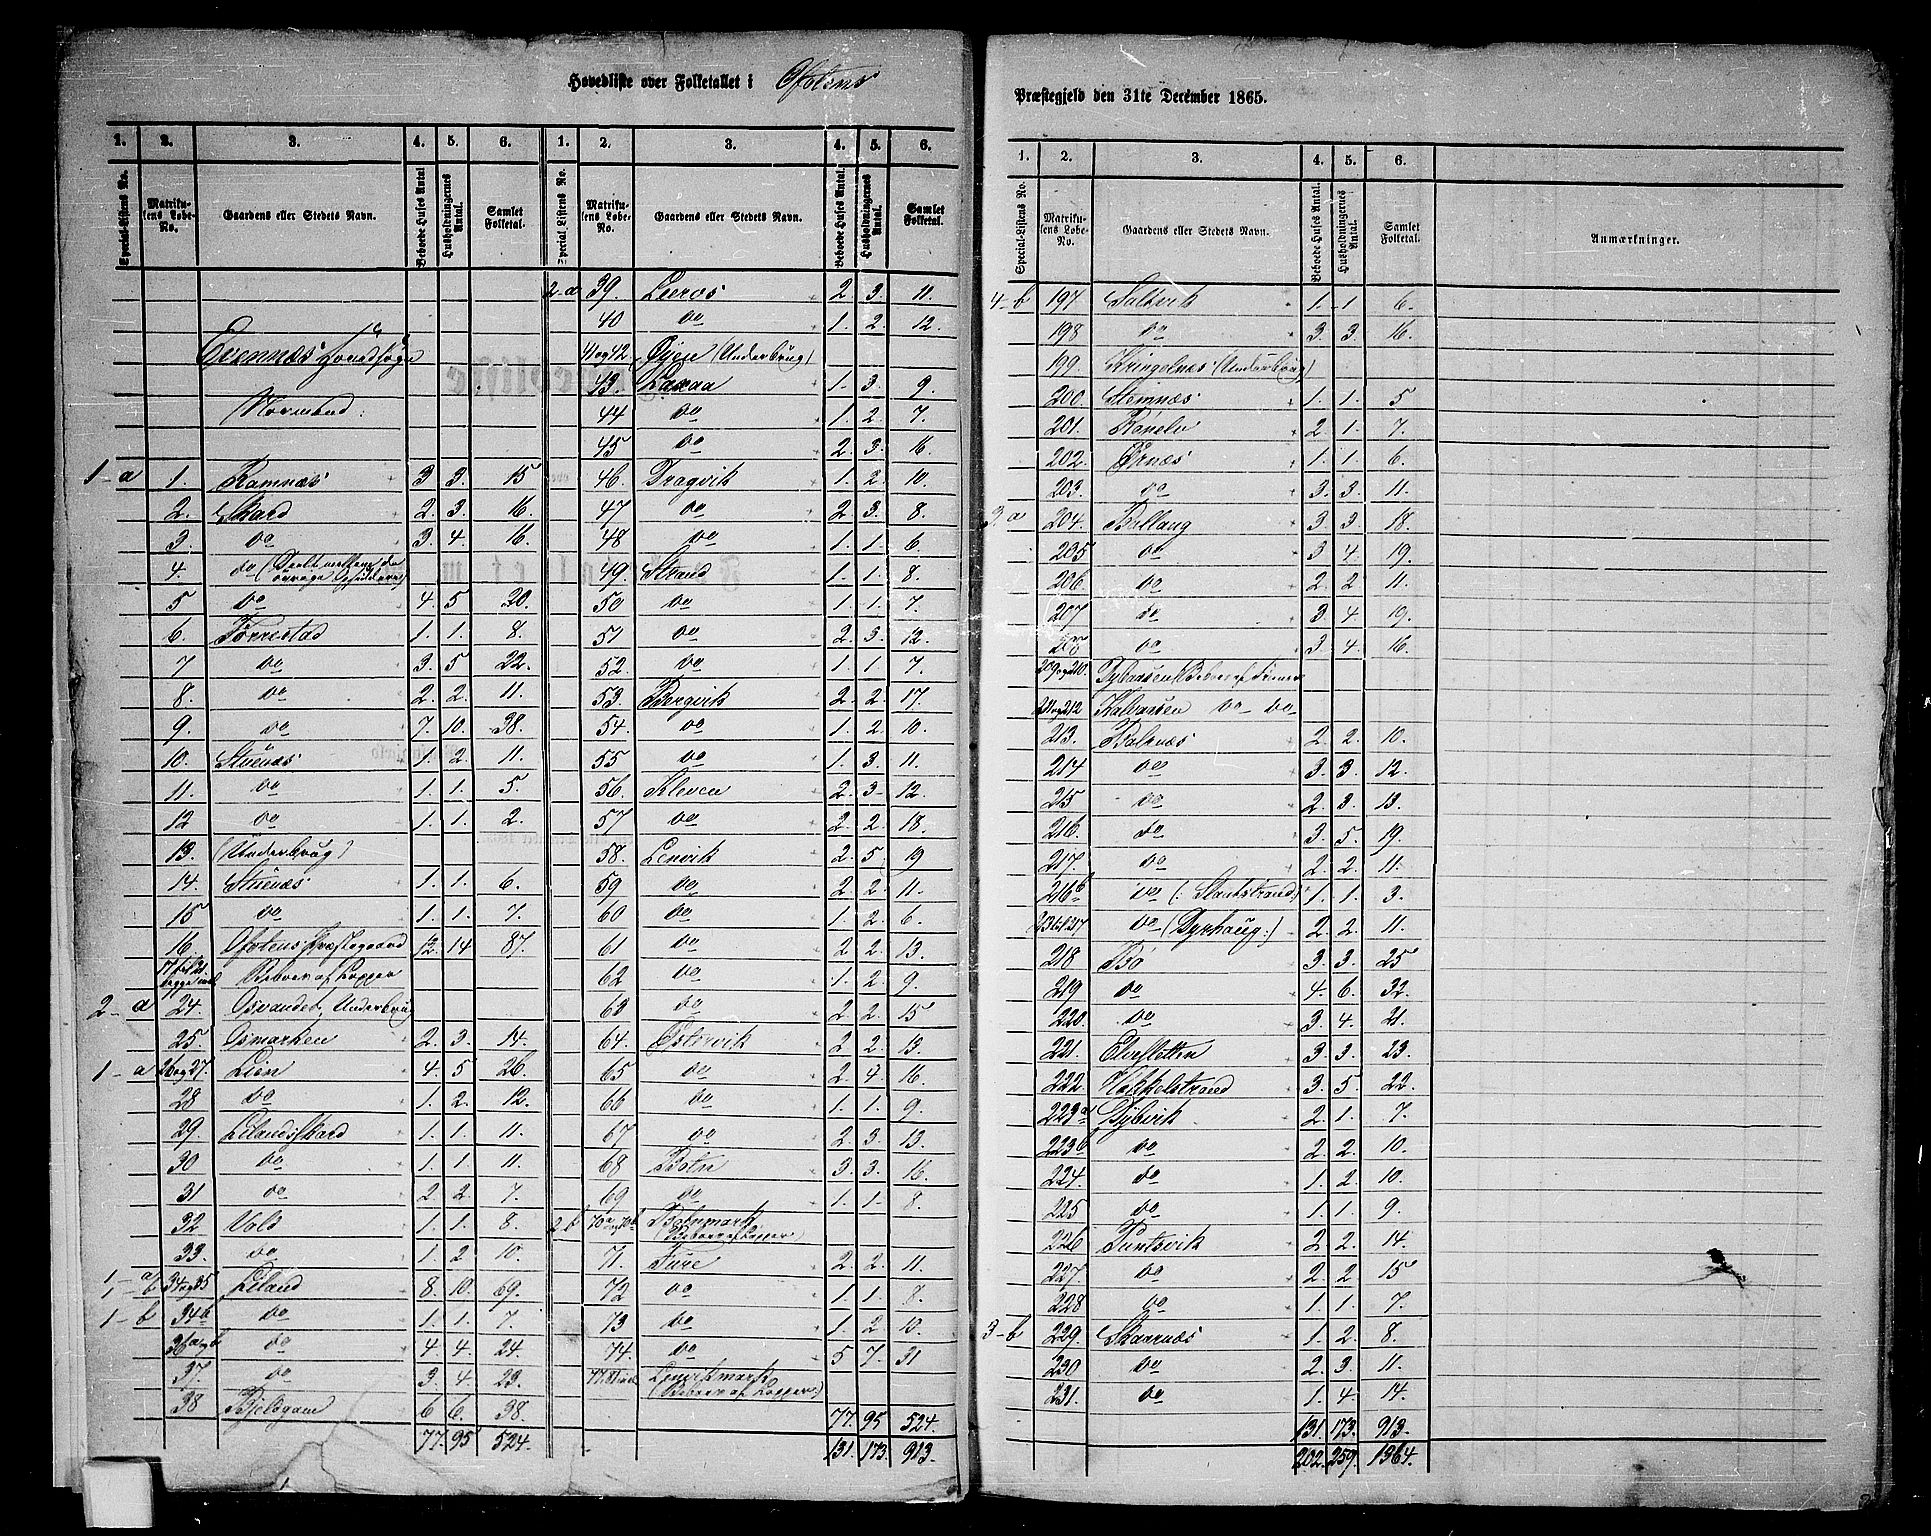 Hovedliste over Folketallet i Ofotens
Præstegjeld den 31te December 1865.
1. 2. 3. 4. 5. 6. 1. 2. 3. 4. 5. 6.
Special-Listens No. Matrikulens Løbe-No. Gaardens eller Stedets Navn. Beboede Huses Antal Husholdningernes Antal. Samlet Folketal. Special Listens No. Matrikulens Løbe-No. Gaardens eller Stedets Navn. Beboede Huses Antal. Husholdningernes Antal. Samlet Folketal.
Evennæs Hovedsogn
1-a 1. Ramnæs 3 3. 15
2. Skard 2. 3. 16.
3. do 3. 4. 16.
4. do (Deelt mellem de
øvrige Opsiddere)
5 do 4. 5 20.
6. Tørrestad 1. 1. 8.
7 do 3. 5 22.
8. do 2. 2. 11.
9. do 7. 10. 38.
10. Stuenæs 1. 2 11.
11. do 1. 1. 5.
12 do 1. 1. 2.
13. (Underbrug)
14. Stuenæs 1. 1. 6.
15 do 1. 1. 7.
16. Ofotens Præstegaard 12. 14 87.
Beboes af Lapper
2-a 24. Osvandet, Underbrug
25. Osmarken 2. 3. 14.
1-a 26og27. Lien 4. 5 26.
28 do 1. 2. 12.
29. Lilandsskard 1. 1. 11.
30 do 1. 1. 11.
31 do 2. 2. 7.
32 Vold 1. 1. 8.
33. do 1. 2 10.
1-a/b 34og35 Liland 8. 10. 69.
1-b 34b do 1. 1. 7.
36a og b do 4. 4. 24.
37. do 3. 4. 23.
38 Bjellgam 6 6. 38.
77. 95 524.
2-a 39. Leeros 2. 3. 11.
40 do 1. 2. 12.
41og42. Øyen (Underbrug)
43. Laxaa 1. 3. 9.
44 do 1. 2. 7.
45 do 2. 3. 16.
46. Dragvik 1. 2. 10.
47 do 2. 3. 8.
48 do 1. 1. 6.
49. Strand 1. 1. 8.
50 do 1. 1. 7.
51 do 2. 3. 12.
52. do 1. 1 7.
53. Bergvik 2. 2. 17.
54. do 1. 2. 10.
55 do 1. 3. 11.
56. Kleven 2. 3. 12.
57 do 2. 2. 18.
58. Lenvik 2. 5. 19
59 do 2. 2. 11.
60 do 1. 2. 6.
61 do 2. 2. 13.
62 do 1. 2. 9.
63 do 2. 2. 15
64. Østervik 2 2. 13.
65 do 2. 4. 16.
66 do 1. 1. 9.
67 do 2. 3. 13.
68 Botn 3. 3. 16.
69 do 1. 1. 8.
2-b Botnmark
(Beboes af Lapper)
71. Ture 2. 2. 11.
72 do 1. 1 8.
73 do 1. 2 10.
74. do 5 7. 31
Lenvikmark
(Beboes af Lapper)
77. 95 524.
131. 173. 913.
1. 2. 3. 4. 5. 6.
Special-Listens No. Matrikulens Løbe-No. Gaardens eller Stedets Navn. Beboede Huses Antal. Husholdningernes Antal. Samlet Folketal. Anmærkninger.
4-b 197 Saltvik 1. 1 6.
198 do 3. 3 16.
199. Kringelnæs (Underbrug)
200. Stemnæs 1. 1. 5
201. Rånelv 2. 1. 7.
202. Ørnæs 1. 1. 6.
203. do 3. 3. 11.
3-a 204. Ballang 3. 3. 18.
205 do 3 4. 19.
206 do 2. 2 11.
207 do 3. 4. 19.
208 do 3. 4. 16.
209og210.
211og212 do do
213. Balsnæs 2. 2. 10.
214 do 3. 3. 12.
215 do 2. 3. 13.
216. do 3. 5. 19.
217. do 2. 2. 11.
216b do 1. 1. 3.
213til217 do (Dyrhaug:) 2. 2. 11.
218 Bö 3. 3. 25
219 do 4. 6. 32.
220. do 3. 4. 21.
221. Elvesletten 3. 3. 23.
222. Hækkelstrand 3. 5. 22.
223a Djybvik 2. 1. 7.
223b do 2. 2. 10.
224. do 1. 2. 10.
225 do 1. 1. 9.
226 Puntsvik 2 2. 14.
227. do 2. 2 15
228 do 1. 1. 7.
3-b 229. Skarnæs 1. 2. 8.
230 do 2. 3. 11.
231. do 1. 4. 14.
131. 173. 913.
202. 259. 1364.